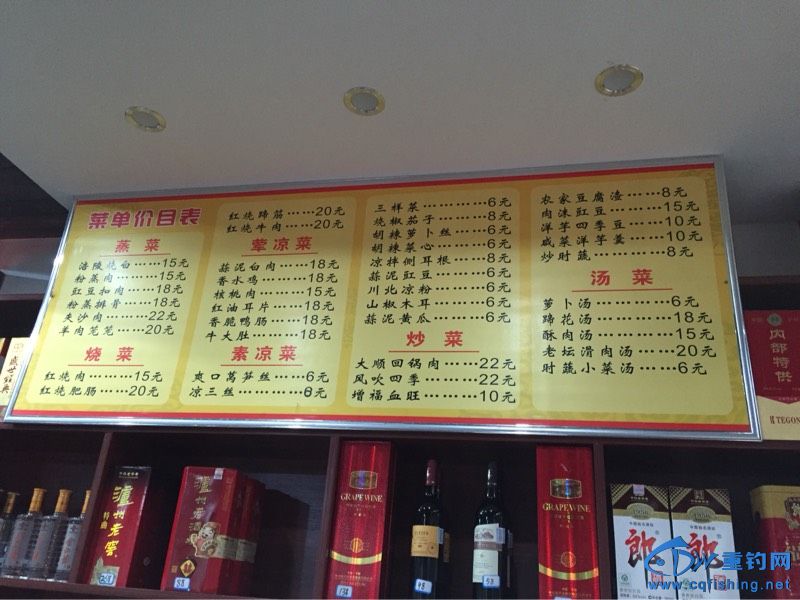 菜单价目表
蒸菜
涪陵烧白……15元
粉蒸肉……15元
豇豆扣肉……18元
粉蒸排骨……18元
夹沙肉……22元
羊肉笼笼……20元
烧菜
红烧肉……15元
红烧肥肠……20元
红烧蹄筋……20元
红烧牛肉……20元
荤凉菜
蒜泥白肉……18元
香水鸡……18元
核桃肉……15元
红油耳片……18元
香脆鸭肠……18元
牛大肚……18元
素凉菜
爽口莴笋丝……6元
凉三丝……6元
三样菜……6元
烧椒茄子……8元
胡辣萝卜丝……6元
胡辣菜心……6元
凉拌侧耳根……8元
蒜泥豇豆……6元
川北凉粉……6元
山椒木耳……6元
蒜泥黄瓜……6元
炒菜
大顺回锅肉……22元
风吹四季……22元
增福血旺……10元
农家豆腐渣……8元
肉沫豇豆……15元
洋芋四季豆……10元
咸菜洋芋羹……10元
炒时蔬……8元
汤菜
萝卜汤……6元
蹄花汤……18元
酥肉汤……15元
老坛滑肉汤……20元
时蔬小菜汤……6元
内部特供
TEGON
盛世经典
泸州老窖
特曲
泸州老酒
GRAPE WINE
GRAPE WINE
1956
1956
郎
郎
258
58
134
98
58
重钓网
www.cqfishing.net